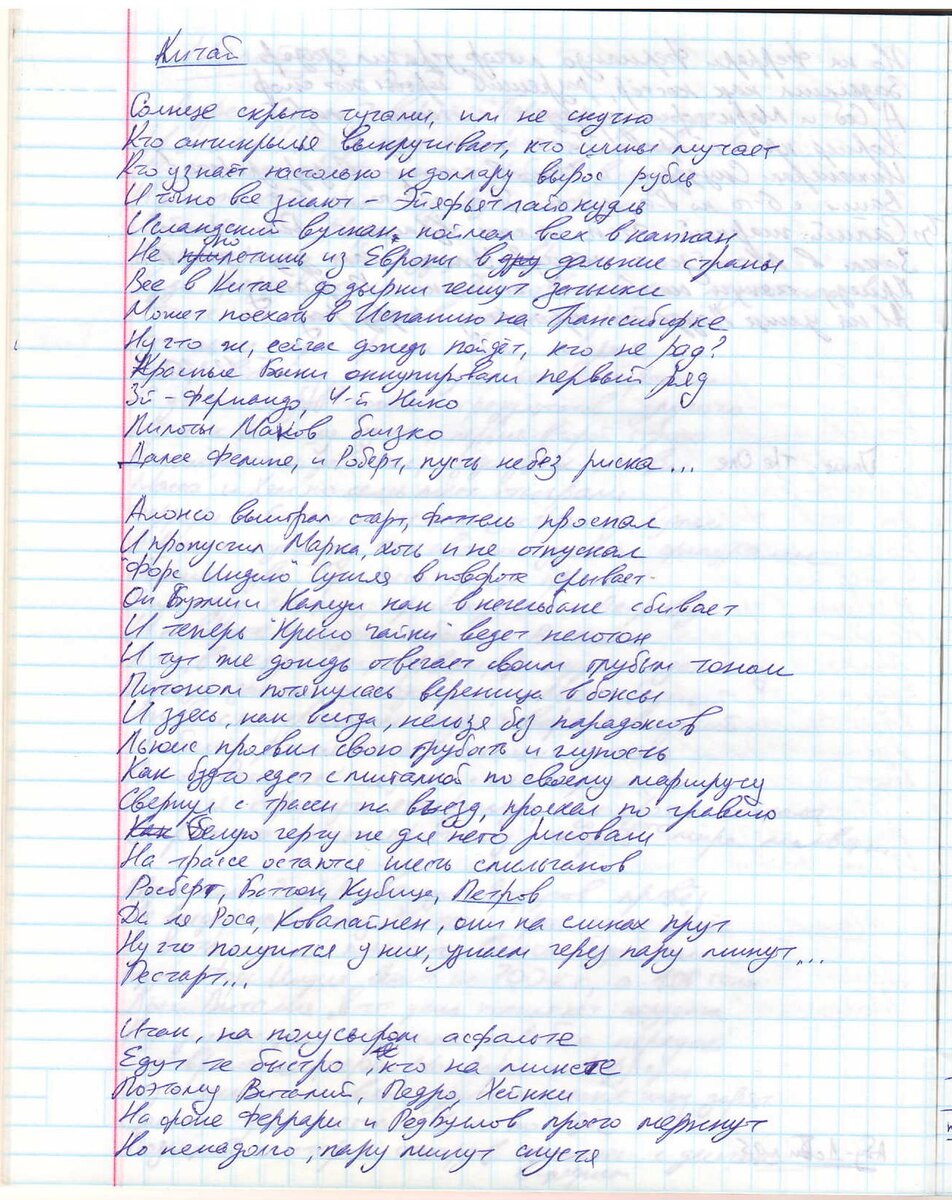 Китай
Солнце скрыто тучами, им не скучно
Кто антикрылья выкручивает, кто шины мучает
Кто узнаёт насколько к доллару вырос рубль
И точно все знают – Эйяфьятлайокудль
Исландский вулкан поймал всех в капкан
Не полетишь из Европы в дальние страны
Все в Китае до дырки чешут затылки
Может поехать в Испанию на Транссибирке
Ну что ж, сейчас дождь пойдёт, кто не рад?
Красные Быки оккупировали первый ряд
3й – Фернандо, 4-й Нико
Пилоты Маков близко
Далее Фелипе, и Роберт, пусть не без риска...
Алонсо выиграл старт, Феттель проспал
И пропустил Марка, хоть и не отпускал
"Форс Индию" Сутиля в повороте срывает
Он Буэми Камуи как в кегельбане сбивает
И теперь "Крыло чайки" ведёт пелотон
И тут же дождь отвечает своим грубым тоном
Питоном потянулась вереница в боксы
И здесь, как всегда, нельзя без парадоксов
Льюис проявил свою грубость и глупость
Как будто едет с мигалкой по своему маршруту
Свернул с трассы на въезд, проехал по гравию
Белую черту не для него рисовали
На трассе остаются шесть смельчаков
Росберг, Баттон, Кубица, Петров
Де ля Роса, Ковалайнен, они на сликах прут
Ну что получится у них, узнаем через пару минут...
Рестарт...
Итак, на полусыром асфальте
Едут те быстро, кто на
Поэтому Виталий, Педро, Хейкки
На фоне Феррари и Редбуллов просто меркнут
Но ненадолго, пару минут спустя